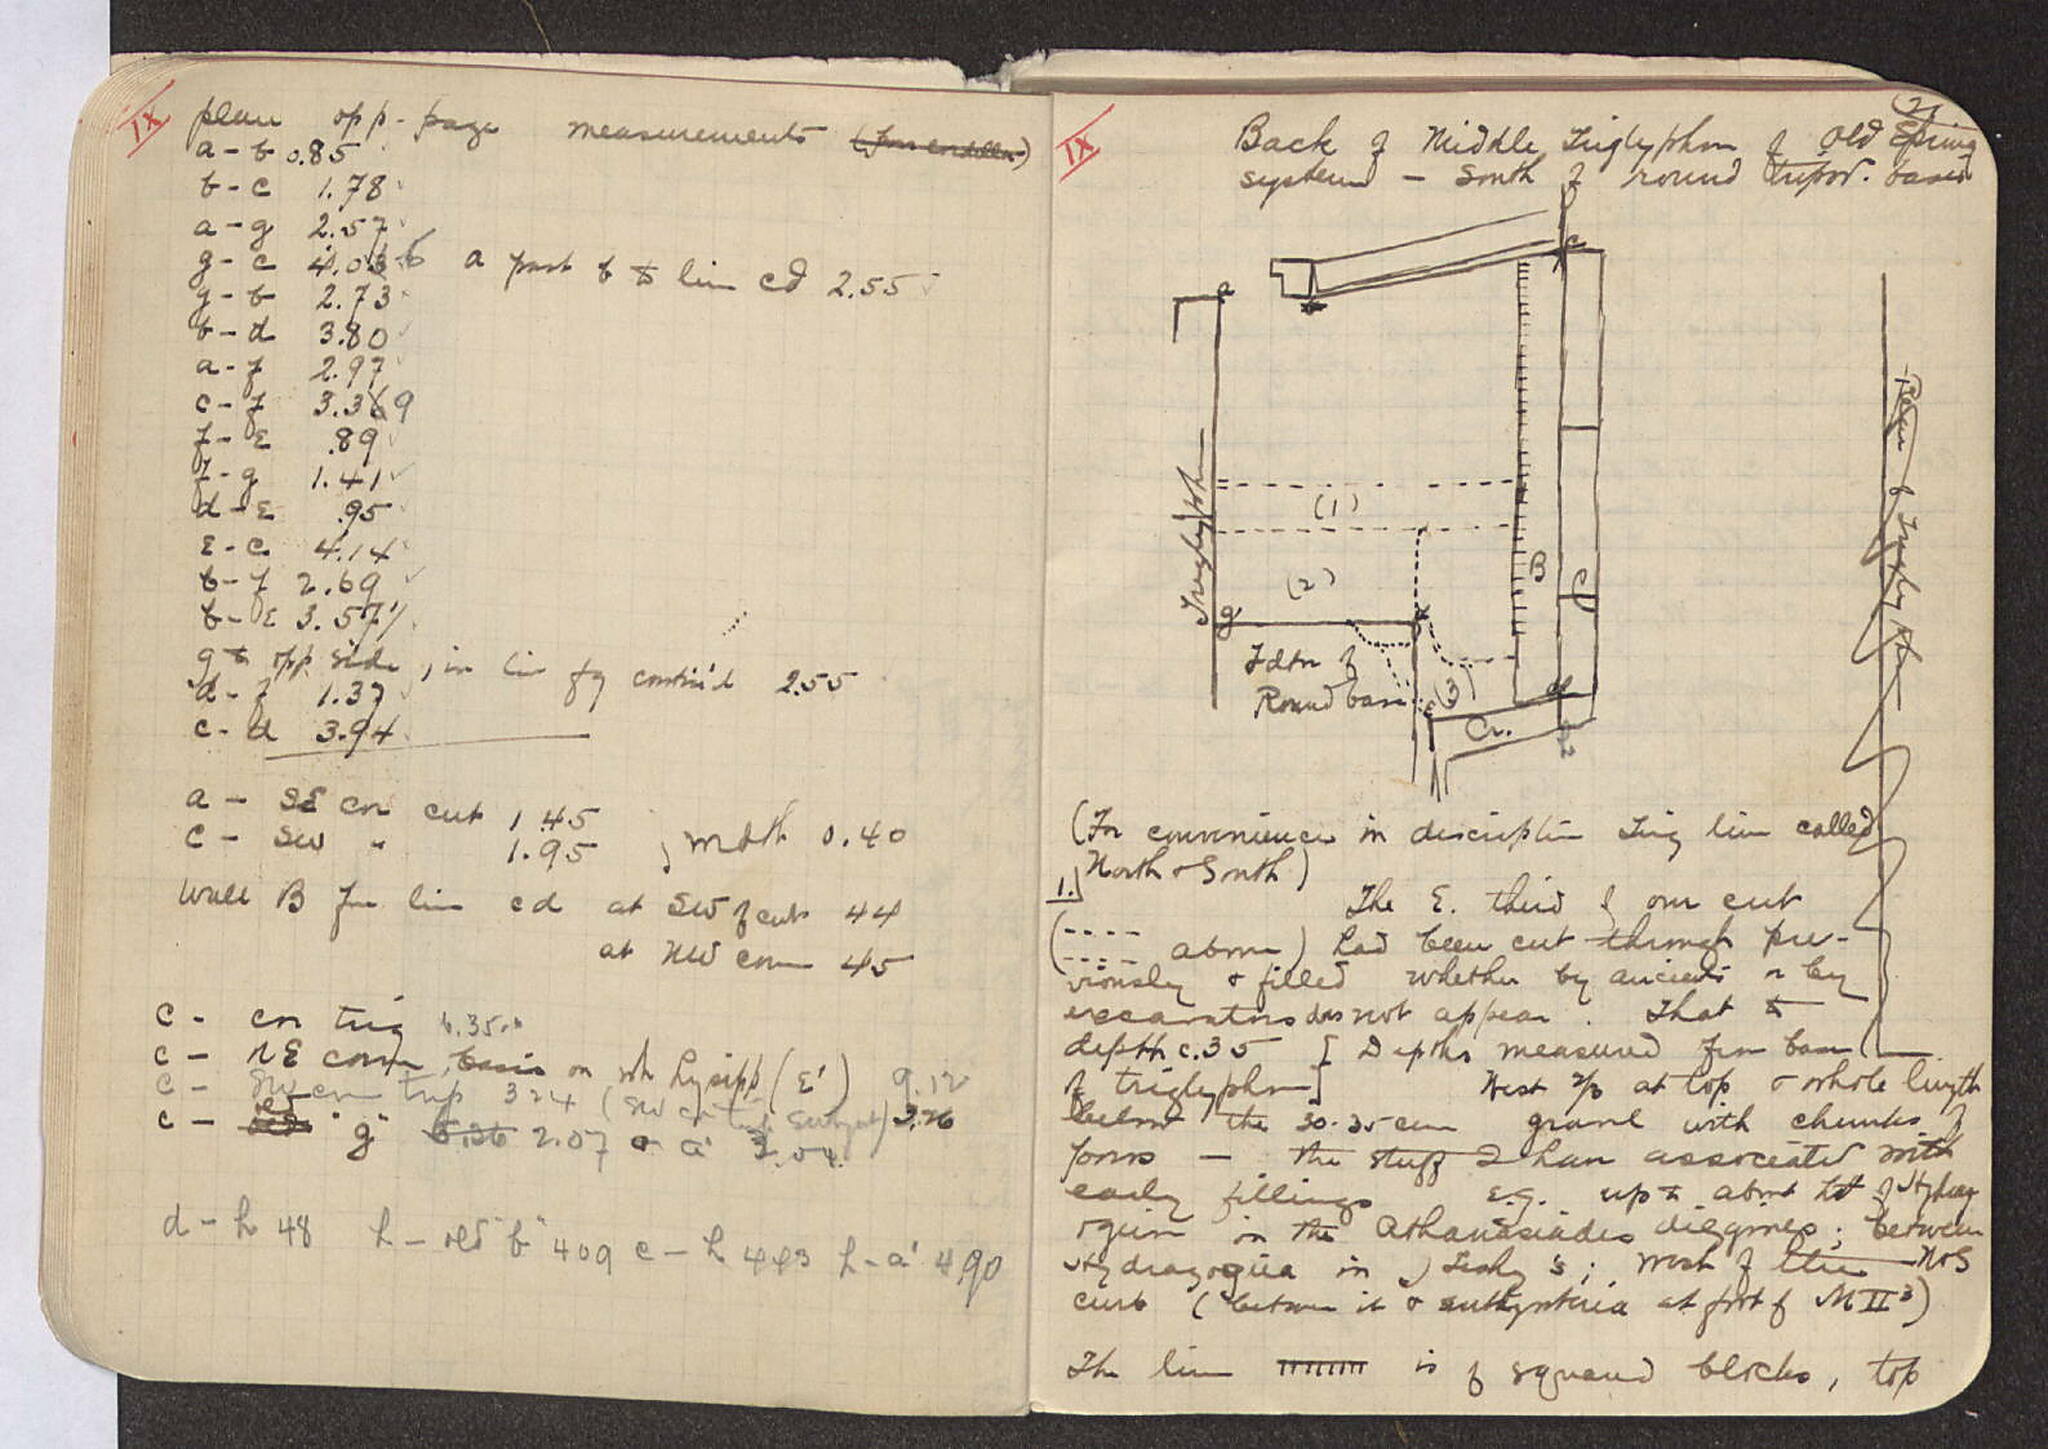 IX
plan opp. page measurements
a - b 0.85
b - c 1.78
a - g 2.57
g - c 4.06 a past b to line cd 2.55
g - b 2.73
b - d 3.80
a - f 2.97
c - f 3.39
f - E .89
f - g 1.41
d - E .95
E - c 4.14
b - f 2.69
b - E 3.57
g to opp. side, in line fg contin'd 2.55
d - f 1.37
c - d 3.94
a - SE cor cut 1.45
c - SW " 1.95 ; width 0.40
Wall B from line cd at SW of cut 44
at NW corner 45
c - cor trig 6.35
c - NE corner basis on wh Lysipp (E') 9.12
c - SW cor trip 324 (SW cor
c - "g" 2.07 a' 3.04 3.26
d - h 48 h - old "b" 409 c - h 443 h - a' 490
IX
(2)
Back of Middle Triglyphon of Old Spring
system - South of round tripod. basis
c
a
b
Triglyphon
(1)
(2)
B
C
g
f
Fdtn of
Round base
(3)
E
d
Cr.
h
Plan of Triglyphon
(For convenience in description Trig line called
North & South)
1.] The E. third of our cut
( above) had been cut through pre-
viously & filled whether by ancients or by
excavators does not appear. That to
depth c.35 [Depths measured from base
of triglyphon] West 2/3 at top & whole length
below the 30-35 cm gravel with chunks of
poros - the stuff I have associated with
early fillings e.g. up to about ht of Hydrag
ogeion in the Athanasiades diggings; between
Hydragogeia in Lesky's; most of the N-S
cuts (between it & euthynteria at foot of M II³)
The line is of squared blocks, top